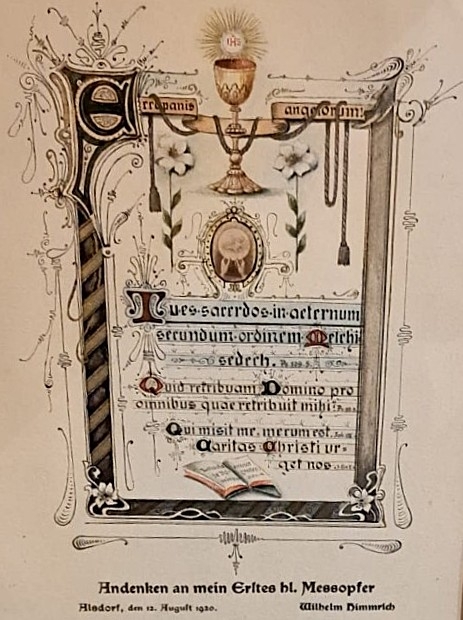 IHS
Ecce panis angelorum:
Tu es sacerdos in aeternum
secundum ordinem Melchi
sedech.
Quid retribuam Domino pro
omnibus quae retribuit mihi?
Qui misit me, mecum est.
Caritas Christi ur-
get nos
Andenken an mein Erstes hl. Messopfer
Alsdorf, den 12. August 1920.
Wilhelm Himmrich